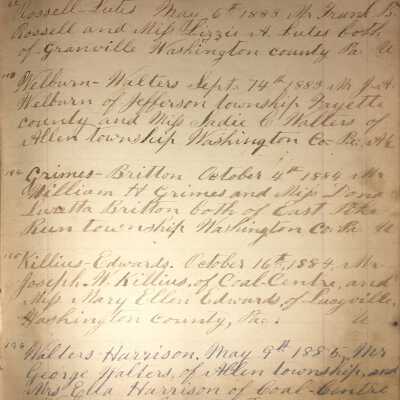 Rossell-Lutes May 6th 1883 Mr Frank B.
Rossell and Miss Lizzie A Lutes both
of Granville Washington county Pa
Welburn-Walters Sept. 14th 1883 Mr J.A.
Welburn of Jefferson township Fayette
county and Miss Sadie C Walters of
Allen township Washington Co. Pa.
Grimes-Britton October 4th 1884 Mr
William H Grimes and Miss
Britton both of East Pike
Run township Washington Co. Pa
Killius-Edwards. October 16th, 1884, Mr
Joseph W. Killius, of Coal-Centre, and
Miss Mary Ellen Edwards of
Washington county, Pa.
Walters Harrison, May 9th 1885, Mr
George Walters, of Allen township, and
Mrs Ella Harrison of Coal-Centre